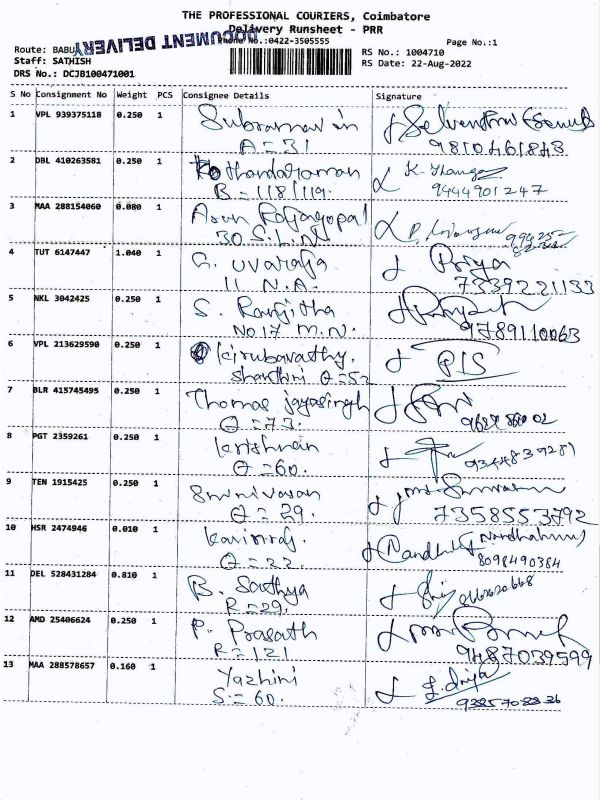 THE PROFESSIONAL COURIERS, Coimbatore
Delivery Runsheet - PRR
DOCUMENT DELIVERY
Phone No.:0422-3505555
Page No.:1
Route: BABU
RS No.: 1004710
Staff: SATHISH
RS Date: 22-Aug-2022
DRS No.: DCJB100471001
S No Consignment No Weight PCS Consignee Details Signature
1 VPL 939375118 0.250 1 Subramanian
A = 31 9810461843
2 DBL 410263581 0.250 1 Kothandaraman K. Thanga
B = 118/119. 9444901247
3 MAA 288154060 0.080 1 Arun Rajagopal
30 S.L.N
4 TUT 6147447 1.040 1 G. uvaraja Priya
11 N.A. 7339221133
5 NKL 3042425 0.250 1 S. Ranjitha
No 17 M.N. 9789110063
6 VPL 213629590 0.250 1 kirubavathy. PIS
shanthini Q = 52
7 BLR 415745495 0.250 1 Thomas jayasingh
Q = 73.
8 PGT 2359261 0.250 1 krishnan
Q = 60. 9344839281
9 TEN 1915425 0.250 1 Srinivasan
Q = 29. 7358553792
10 HSR 2474946 0.010 1 Kaviraj.
8098490384
11 DEL 528431284 0.810 1 B. Sathya
R = 29.
12 AMD 25406624 0.250 1 P. Prasath
R = 121 9487039599
13 MAA 288578657 0.160 1 Yazhini
S = 60.